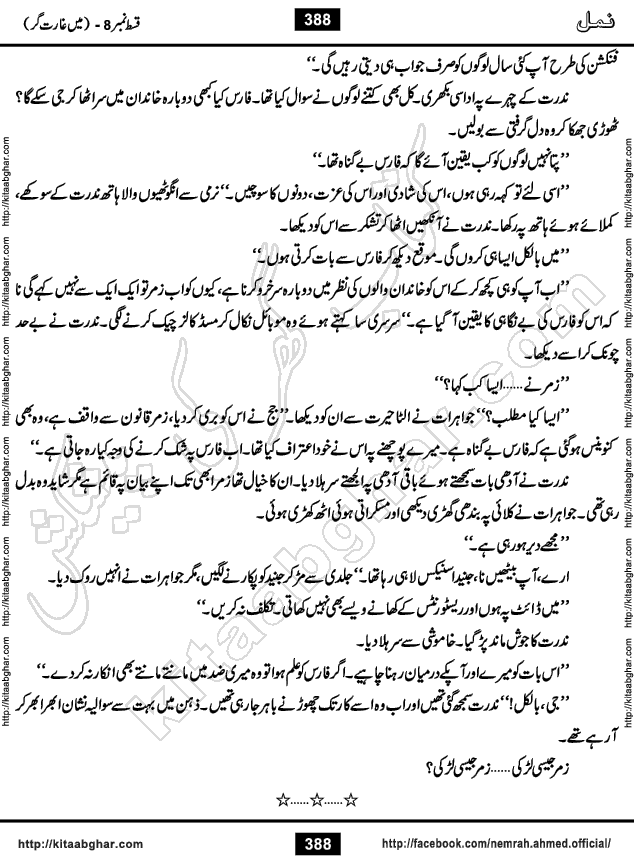 نمل
388
قسط نمبر 8 - (میں غارت گر)
فنکشن کی طرح آپ کئی سال لوگوں کو صرف جواب ہی دیتی رہیں گی۔‘‘
ندرت کے چہرے پہ اداسی بکھری۔ کل بھی کتنے لوگوں نے سوال کیا تھا۔ فارس کیا کبھی دوبارہ خاندان میں سر اٹھا کر جی سکے گا؟
ٹھوڑی جھکا کر وہ دل گرفتی سے بولیں۔
’’پتا نہیں لوگوں کو کب یقین آئے گا کہ فارس بے گناہ تھا۔‘‘
’’اسی لئے تو کہہ رہی ہوں، اس کی شادی اور اس کی عزت، دونوں کا سوچیں۔‘‘ نرمی سے انگوٹھیوں والا ہاتھ ندرت کے سوکھے،
کملائے ہوئے ہاتھ پہ رکھا۔ ندرت نے آنکھیں اٹھا کر تشکر سے اس کو دیکھا۔
’’میں بالکل ایسا ہی کروں گی۔ موقع دیکھ کر فارس سے بات کرتی ہوں۔‘‘
’’اب آپ کو ہی کچھ کر کے اس کو خاندان والوں کی نظر میں دوبارہ سرخرو کرنا ہے، کیوں کو اب زمر تو ایک ایک سے نہیں کہے گی نا
کہ اس کو فارس کی بے نگاہی کا یقین آ گیا ہے۔‘‘ سرسری سا کہتے ہوئے وہ موبائل نکال کر مسڈ کالز چیک کرنے لگی۔ ندرت نے بے حد
چونک کر اسے دیکھا۔
’’زمر نے...... ایسا کب کہا؟‘‘
’’ایسا کیا مطلب؟‘‘ جواہرات نے الٹا حیرت سے ان کو دیکھا۔ ’’جج نے اس کو بری کر دیا، زمر قانون سے واقف ہے، وہ بھی
کنوینس ہو گئی ہے کہ فارس بے گناہ ہے۔ میرے پوچھنے پہ اس نے خود اعتراف کیا تھا۔ اب فارس پہ شک کرنے کی وجہ کیا رہ جاتی ہے۔‘‘
ندرت نے آدھی بات سمجھتے ہوئے باقی آدھی پہ الجھتے سر ہلا دیا۔ ان کا خیال تھا زمر ابھی تک اپنے بیان پہ قائم ہے مگر شاید وہ بدل
رہی تھی۔ جواہرات نے کلائی پہ بندھی گھڑی دیکھی اور مسکراتی ہوئی اٹھ کھڑی ہوئی۔
’’مجھے دیر ہو رہی ہے۔‘‘
ارے، آپ بیٹھیں نا، جنید اسنیکس لا ہی رہا تھا۔‘‘ جلدی سے مڑ کر جنید کو پکارنے لگیں، مگر جواہرات نے انہیں روک دیا۔
’’میں ڈائٹ پہ ہوں اور ریسٹورنٹس کے کھانے ویسے بھی نہیں کھاتی۔ تکلف نہ کریں۔‘‘
ندرت کا جوش ماند پڑ گیا۔ خاموشی سے سر ہلا دیا۔
’’اس بات کو میرے اور آپکے درمیان رہنا چاہیے۔ اگر فارس کو علم ہوا تو وہ میری ضد میں مانتے مانتے بھی انکار نہ کر دے۔‘‘
’’جی، بالکل!‘‘ ندرت سمجھ گئی تھیں اور اب وہ اسے کار تک چھوڑنے باہر جا رہی تھیں۔ ذہن میں بہت سے سوالیہ نشان ابھر ابھر کر
آ رہے تھے۔
زمر جیسی لڑکی...... زمر جیسی لڑکی؟
☆......☆......☆
http://kitaabghar.com
388
http://facebook.com/nemrah.ahmed.official/
http://kitaabghar.com http://kitaabghar.com http://kitaabghar.com http://kitaabghar.com http://kitaabghar.com http://kitaabghar.com
http://kitaabghar.com http://kitaabghar.com http://kitaabghar.com http://kitaabghar.com http://kitaabghar.com http://kitaabghar.com
کتاب گھر کی پیشکش
kitaabghar.com